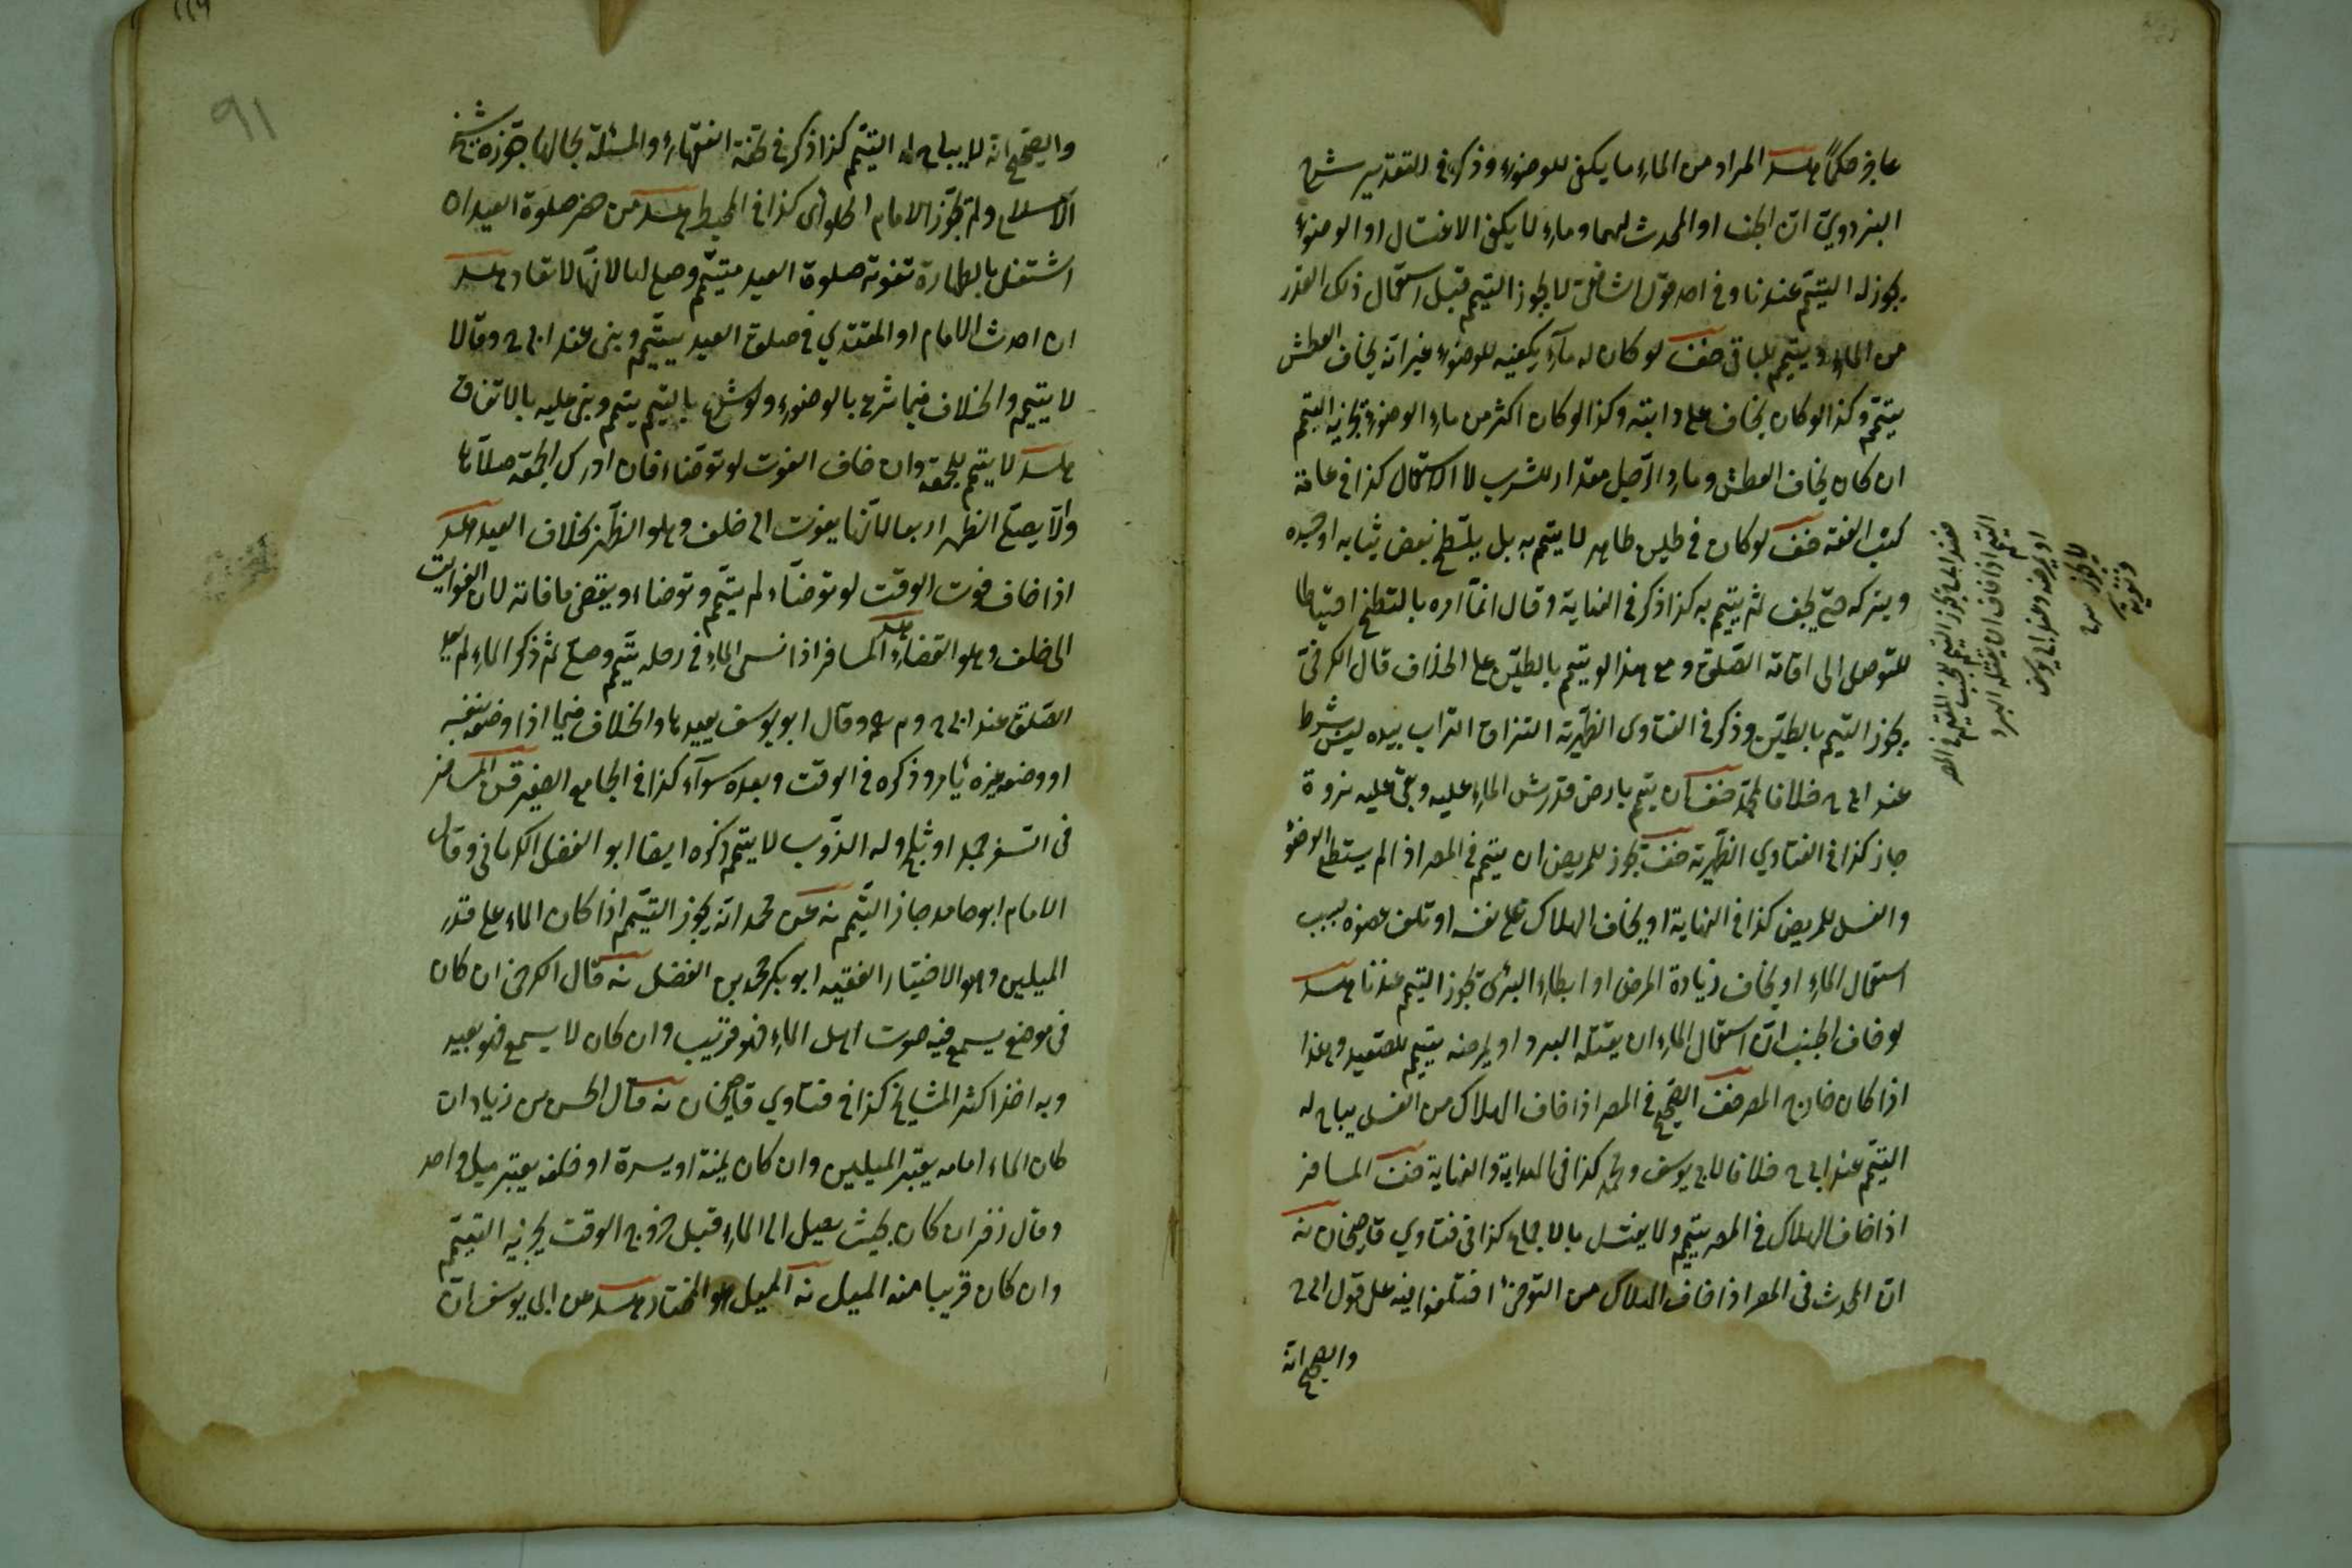 عاجز حكمًا مسئلة المراد من الماء ما يكفي للوضوء وذكر في التقدير شرح
البزدوي ان الجنب او المحدث لهما وماء لا يكفي الاغتسال او الوضوء
يجوز له التيمم عندنا وفي احد قول الشافعي لا يجوز التيمم قبل استعمال ذلك القدر
من الماء ويتيمم للباقي صنف لو كان له ماء يكفيه للوضوء غير انه يخاف العطش
يتيمم وكذا لو كان يخاف على دابته وكذا لو كان اكثر من ماء الوضوء يجزيه التيمم
ان كان يخاف العطش وماء الرجل مقدار للشرب لا الاستعمال كذا في عامة
كتب الفقه صنف لو كان في طين طاهر لا يتيمم به بل يلتطخ بعض ثيابه او جسده
ويتركه حتى يجف ثم يتيمم به كذا ذكر في الغاية وقال انما امره بالتطخ احتياطا
للتوصل الى اقامة الصلوة ومع هذا لو يتيمم بالطين على الخلاف قال الكرخي
يجوز التيمم بالطين وذكر في الفتاوى الظهيرية التزاق التراب بيده ليس شرط
عند ابي ح خلافا لمحمد صنف ان يتيمم بارض قد رش الماء عليه وبقي عليه ندوة
جاز كذا في الفتاوي الظهيرية صنف يجوز للمريض ان يتيمم في المصر اذا لم يستطع الوضوء
والغسل للمريض كذا في النهاية او يخاف الهلاك على نفسه او تلف عضوه بسبب
استعمال الماء او يخاف زيادة المرض او ابطاء البرئ يجوز التيمم عندنا مسئلة
لو خاف الجنب ان استعمال الماء ان يقتله البرد او يمرضه يتيمم للصعيد وهذا
اذا كان خارج المصر صنف الصحيح في المصر اذا خاف الهلاك من الغسل يباح له
التيمم عند ابي ح خلافا لابي يوسف ومحمد كذا في الهداية والنهاية صنف المسافر
اذا خاف الهلاك في المصر يتيمم ولا يغتسل بالاجماع كذا في فتاوي قاضيخان نه
ان المحدث في المصر اذا خاف الهلاك من التوضئ اختلفوا فيه على قول ابي ح
والصحيح انه
فعند ابي ح يجوز التيمم للجنب المقيم في المصر
التيمم اذا خاف ان يقتله البرد
او يمرضه وعند ابي يوسف
لا يجوز
والصحيح انه لا يباح له التيمم كذا ذكر في تحفة الفقهاء والمسئلة بحالها جوزه شيخ
الاسلام ولم يجوز الامام الحلواي كذا في المحيط مسئلة من حضر صلوة العيد ان
اشتغل بالطهارة تفوته صلوة العيد يتيمم وصلى لها لانها لا تعاد مسئلة
ان احدث الامام او المقتدي في صلوة العيد يتيمم وبنى عند ابي ح وقالا
لا يتيمم والخلاف فيما شرع بالوضوء ولو شرع بالتيمم يتيمم وبنى عليه بالاتفاق
مسئلة لا يتيمم للجمعة وان خاف الفوت لو توضاء فان ادرك الجمعة صلاها
والا يصلي الظهر اربعا لانها يفوت الى خلف وهو الظهر بخلاف العيد مسئلة
اذا خاف فوت الوقت لو توضاء لم يتيمم وتوضاء ويقضي ما فاته لان الفوايت
الى خلف وهو القضاء مسئلة المسافر اذا نسي الماء في رحله يتيمم وصلى ثم ذكر الماء لم يعد
الصلوة عند ابي ح وم وقال ابو يوسف يعيدها والخلاف فيما اذا وضعه بنفسه
او وضع غيره بامره وذكره في الوقت وبعده سواء كذا في الجامع الصغير المسافر
في السفر جمد او ثلج وله الذوب لا يتيمم ذكره ايضا ابو الفضل الكرماني وقال
الامام ابو حامد جاز التيمم نه عن محمد انه يجوز التيمم اذا كان الماء على قدر
الميلين وهو الاختيار الفقيه ابو بكر محمد بن الفضل نه قال الكرخي ان كان
في موضع يسمع فيه صوت اهل الماء فهو قريب وان كان لا يسمع فهو بعيد
وبه اخذ اكثر المشايخ كذا في فتاوي قاضيخان نه قال الحسن بن زياد ان
كان الماء امامه يعتبر الميلين وان كان يمنة او يسرة او خلفه يعتبر ميل واحد
وقال زفر ان كان بحيث يصل الى الماء قبل خروج الوقت لا يجزيه التيمم
وان كان قريبا منه الميل نه الميل هو المختار مسئلة عن ابي يوسف ان
91